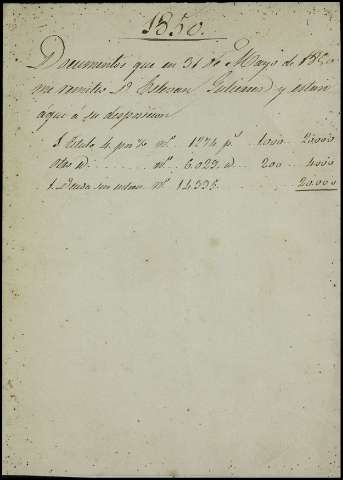 1850.
Documentos que en 31 de Mayo de 1850
me remitio Dn Esteban Gutierrez y estan
aqui á su disposicion
1 Titulo 4 por % nº 1274 ps 1000 20000
Otro id nº 6.029 id 200 4000
1. Deuda sin interes nº 14335 20.000